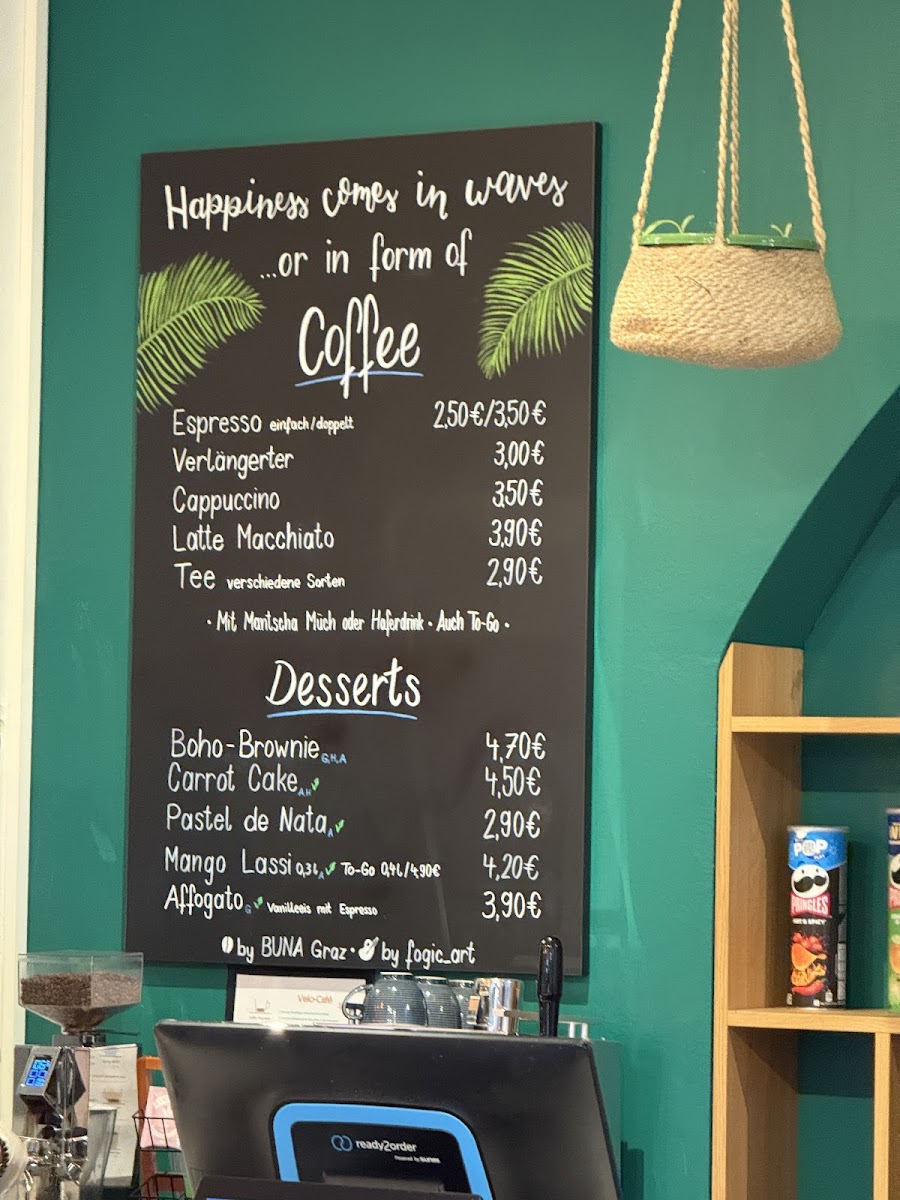 Happiness comes in waves
...or in form of
Coffee
Espresso einfach/doppelt 2,50€/3,50€
Verlängerter 3,00€
Cappuccino 3,50€
Latte Macchiato 3,90€
Tee verschiedene Sorten 2,90€
• Mit Mantscha Müch oder Haferdrink • Auch To-Go •
Desserts
Boho-Brownie G,H,A 4,70€
Carrot Cake A,H 4,50€
Pastel de Nata A 2,90€
Mango Lassi 0,3L A To-Go 0,4L/4,90€ 4,20€
Affogato G Vanilleeis mit Espresso 3,90€
by BUNA Graz • by fogic_art
Velo-Café
POP
PRINGLES
HOT & SPICY
ready2order